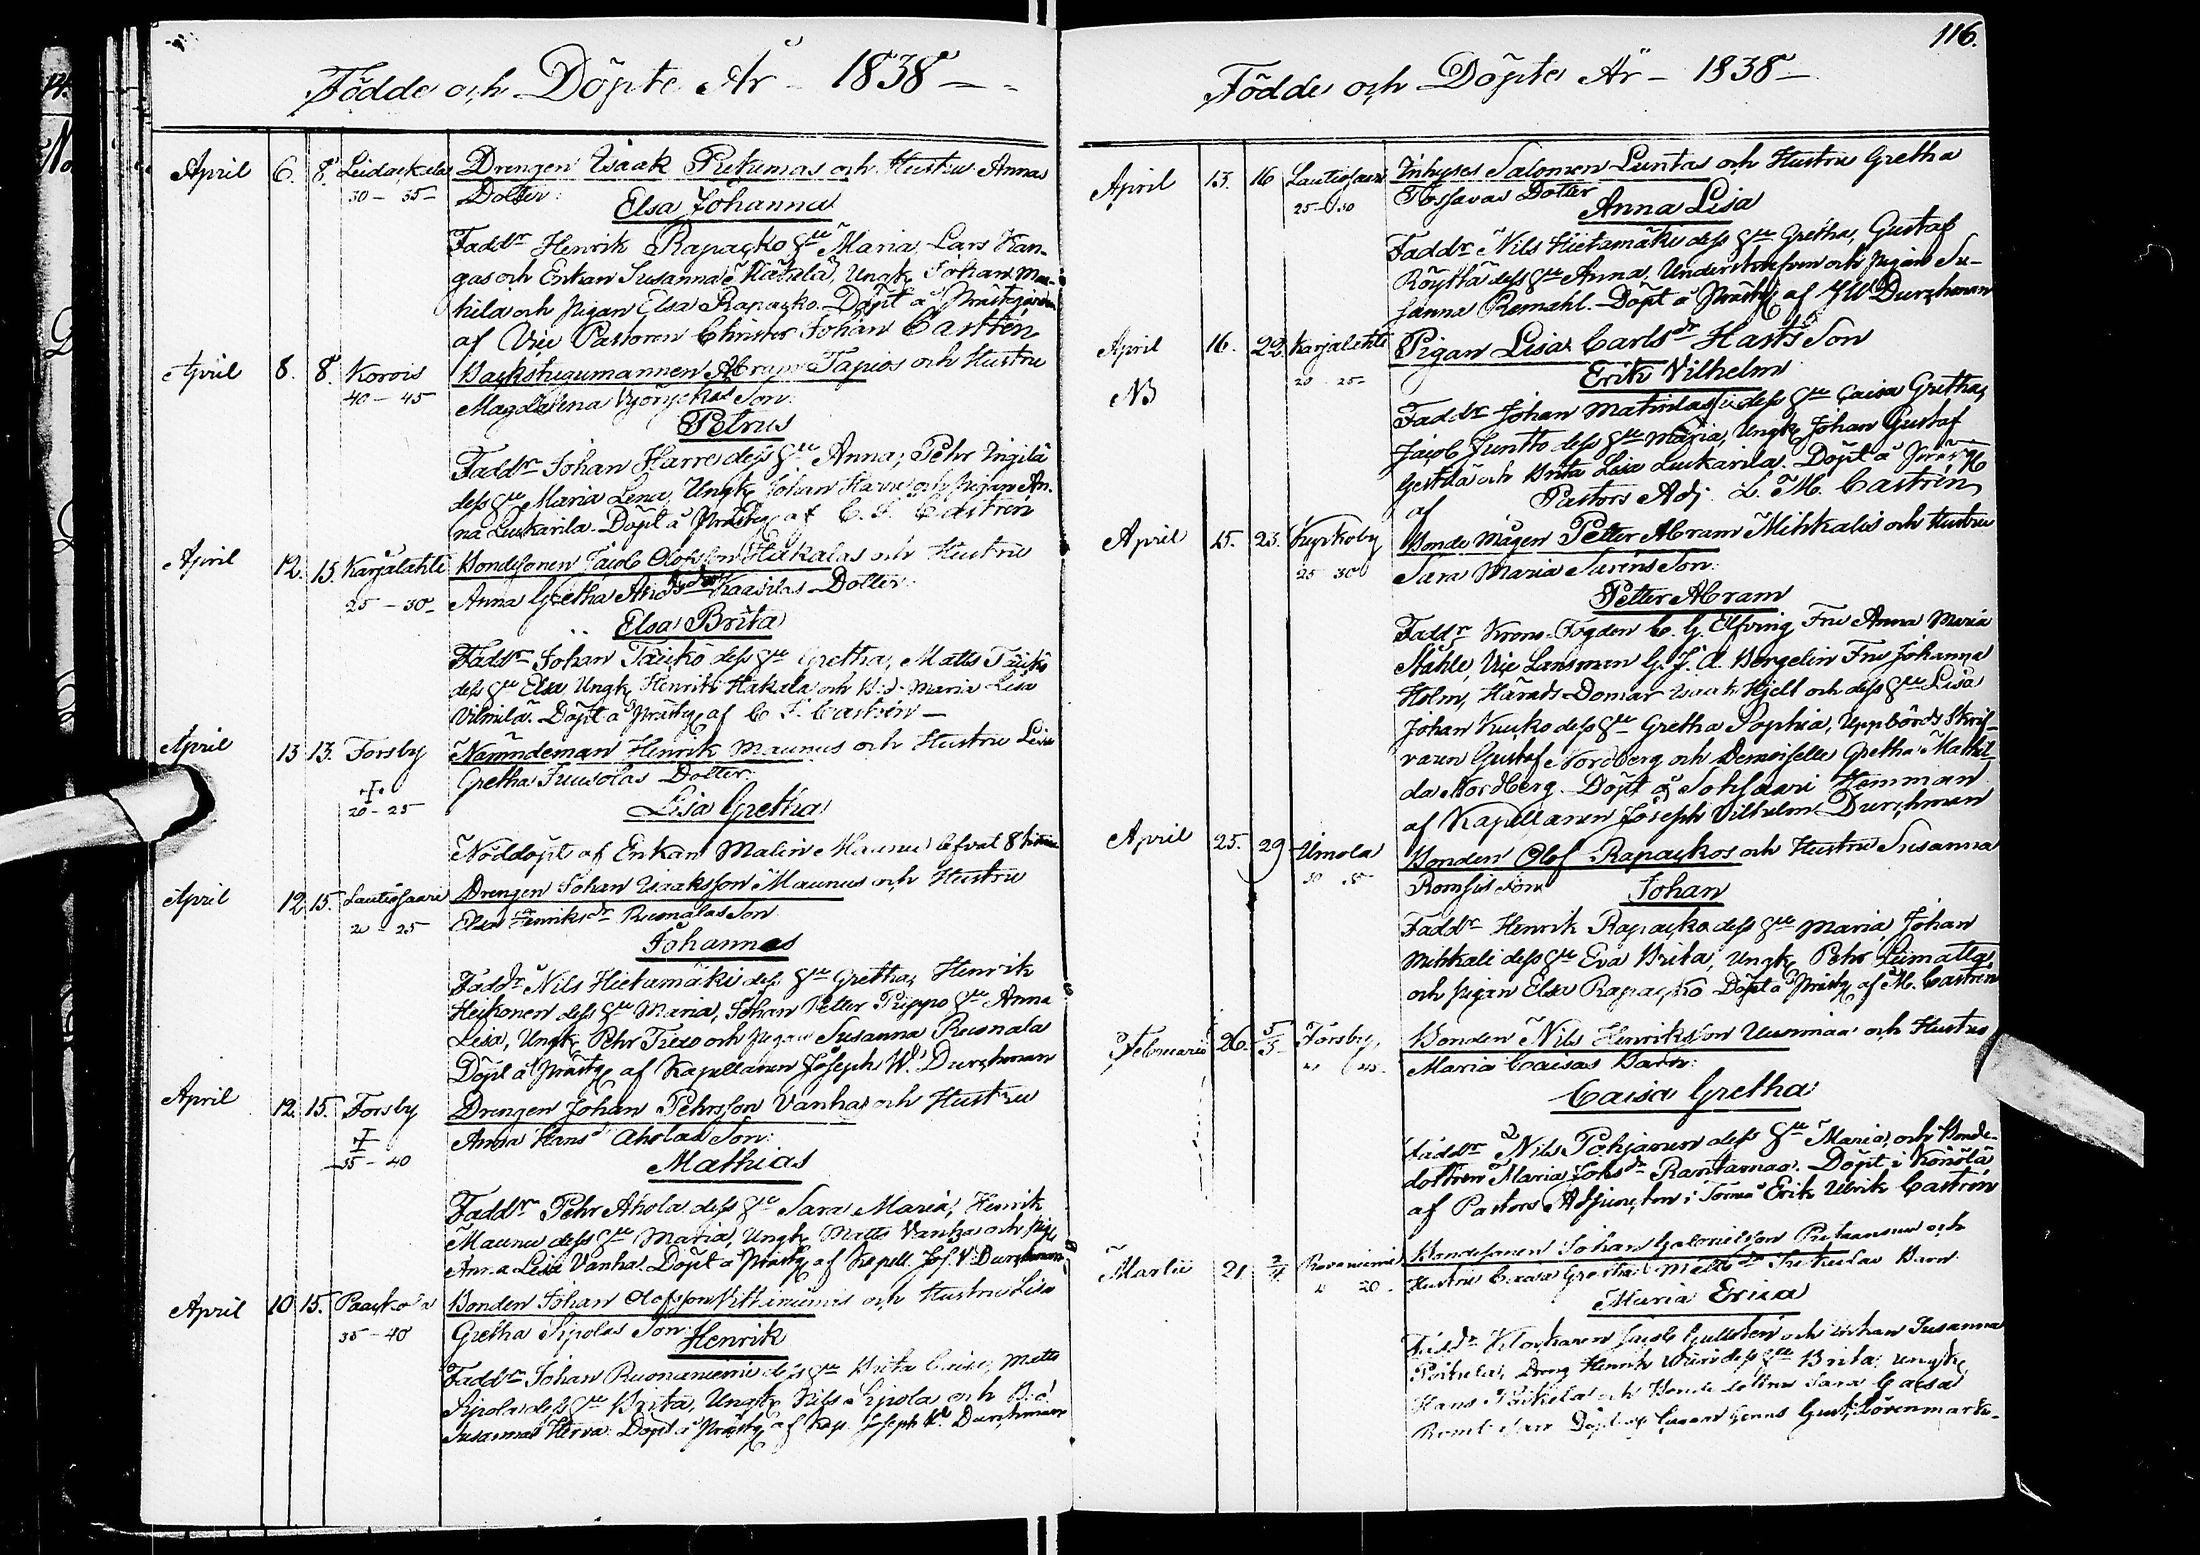 Födde och Döpte År - 1838 -
April 6. 8. Drengen Isaak Pekumas och Hustru Annas
30 - 35 - Dotter:
Elsa Johanna
Faddr Henrik Rapacko Hu Maria, Lars Kan-
gas och Enkan Susanna Ungk Johan
kila och Pigan Elsa Rapacko. Döpt å Prästgården
af Vice Pastoren Christer Johan Castrén
April 8. 8. Korois Backstugumannen Abram Tapios och Hustru
40 - 45 Magdalena Son:
Petrus
Faddr Johan Harre dess Hu Anna, Pehr Ingilä
dess Hu Maria Lena, Ungk Johan Harre och Pigan An-
na Luukarila. Döpt å Prästg af C. J. Castrén
April 12. 15. Karjalahti Bondesonen Jacob Olofsson Hakalas och Hustru
25 - 30 - Anna Gretha Kaarilas Dotter:
Elsa Brita
Faddr Johan Täickö dess Hu Gretha, Matts Täickö
dess Hu Elsa, Ungk Henrik Hakala och B.d. Maria Lisa
Vilmilä. Döpt å Prästg af C J. Castrén -
April 13 13. Forsby Nämndeman Henrik Maunus och Hustru Lisa
Gretha Juusolas Dotter:
20 - 25
Lisa Gretha
Nöddöpt af Enkan Malin Maunu lefvat 8 timar
April 12 15. Lautiosaari Drengen Johan Isaaksson Maunus och Hustru
20 - 25 Elsa Henriksdr Ruonalas Son
Johannes
Faddr Nils Hietamäki dess Hu Gretha, Henrik
Heikonen dess Hu Maria, Johan Petter Prippo Hu Anna
Lisa, Ungk Pehr och Pigan Susanna Ruonala
Döpt å Prästg af Kapellanen Joseph W. Durchman
April 12. 15. Forsby Drengen Johan Pehrsson Vanhas och Hustru
Anna Hansd Aholas Son:
35 - 40
Mathias
Faddr Pehr Ahola dess Hu Sara Maria, Henrik
Maunu dess Hu Maria, Ungk Matts Vanha och Pig
Anna Lisa Vanha. Döpt å Prästg af Kapell. Jos. V. Durchman
April 10 15. Paackola Bonden Johan Olofsson Vittaniemis och Hustru Lisa
35 - 40 Gretha Sipolas Son:
Henrik
Faddr Johan Ruonaniemi dess Hu Brita Caisa, Matts
Sipola dess Hu Brita, Ungk Nils Sipola och B.d.
Susanna Herva. Döpt å Prästg af Kap. Joseph W. Durchman
116.
Födde och Döpte År - 1838 -
April 13. 16 Lautiosaari Inhyses Salomon Luntas och Hustru Gretha
25 - 30 Dotter
Anna Lisa
Faddr Nils Hietamäki dess Hu Gretha, Gustaf
Röyttä dess Hu Anna, och Pigan Su-
sanna Remahl. Döpt å Prästg af J W Durchman
April 16. 22. Karjalahti Pigan Lisa Carlsdr Hasts Son
20 - 25 -
NB
Erik Vilhelm
Faddr Johan Matinlassi dess Hu Caisa Gretha,
Jacob Juntto dess Hu Maria, Ungk Johan Gustaf
och Brita Lisa Luukarila. Döpt å Prästg
af Pastors Adj. L. M. Castrén
April 15. 23. Kyrkoby Bonde Mågen Petter Abram Mihkalis och Hustru
25 - 30 Sara Maria Suréns Son:
Petter Abram
Faddr Krono-Fogden C. G. Elfving Fru Anna Maria
Ståhle, Vice Länsman G. J. A. Bergelin Fru Johanna
Holm, Härads Domar Isaak Hjelt och dess Hu Lisa
Johan Kuuko dess Hu Gretha Sophia, Uppbörds Skrif-
varen Gustaf Nordberg och Demoiselle Gretha Mathil-
da Nordberg. Döpt å Sohsaari Hemman
af Kapellanen Joseph Vilhelm Durchman
April 25. 29 Umola Bonden Olof Rapackos och Hustru Susanna
Romsis Son
Johan
Faddr Henrik Rapacko dess Hu Maria Johan
Mihkali dess Hu Eva Brita, Ungk Pehr Leimatta
och Pigan Elsa Rapacko Döpt å Prästg af M. Castrén
Februarii 26. 5/3 Forsby, Bonden Nils Henriksson Uusimaa och Hustru
Maria Caisas Barn:
Caisa Gretha
Faddr Nils Pohjanen dess Hu Maria, och Bonde-
dottren Maria Johsdr Rantamaa. Döpt i Könölä
af Pastors Adjuncten i Torneå Erik Ulrik Castrén
Martii 21 2/4 Rovaniemi Bondesonen Johan Gabrielsson och
20 - Hustru Caisa Gretha Barn
Maria Erica
Faddr Klockaren Jacob Gullstén och Enkan Susanna
Poikela, Dreng Henrik dess Hu Brita, Ungk
Hans Poikela och Bonde dottren Sara Caisa
Döpt af